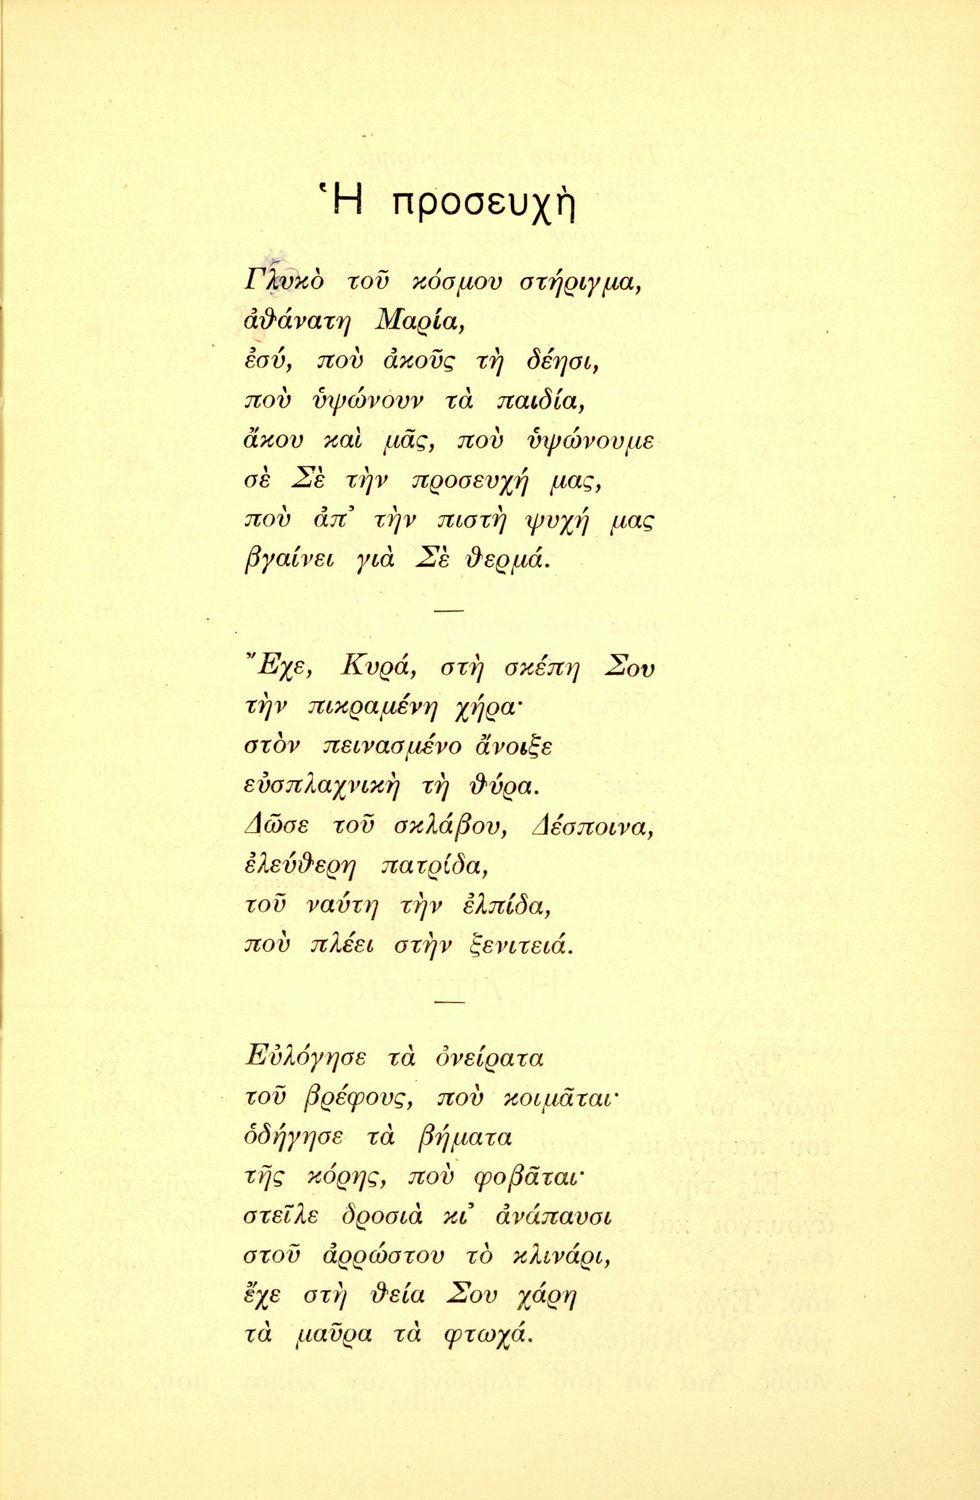 Ἡ προσευχὴ
Γλυκὸ τοῦ κόσμου στήριγμα,
ἀθάνατη Μαρία,
ἐσύ, ποὺ ἀκοῦς τὴ δέησι,
ποὺ ὑψώνουν τὰ παιδία,
ἄκου καὶ μᾶς, ποὺ ὑψώνουμε
σὲ Σὲ τὴν προσευχή μας,
ποὺ ἀπ’ τὴν πιστὴ ψυχή μας
βγαίνει γιὰ Σὲ θερμά.
—
Ἔχε, Κυρά, στὴ σκέπη Σου
τὴν πικραμένη χήρα·
στὸν πεινασμένο ἄνοιξε
εὐσπλαχνικὴ τὴ θύρα.
Δῶσε τοῦ σκλάβου, Δέσποινα,
ἐλεύθερη πατρίδα,
τοῦ ναύτη τὴν ἐλπίδα,
ποὺ πλέει στὴν ξενιτειά.
—
Εὐλόγησε τὰ ὀνείρατα
τοῦ βρέφους, ποὺ κοιμᾶται·
ὁδήγησε τὰ βήματα
τῆς κόρης, ποὺ φοβᾶται·
στεῖλε δροσιὰ κι’ ἀνάπαυσι
στοῦ ἀρρώστου τὸ κλινάρι,
ἔχε στὴ θεία Σου χάρη
τὰ μαῦρα τὰ φτωχά.